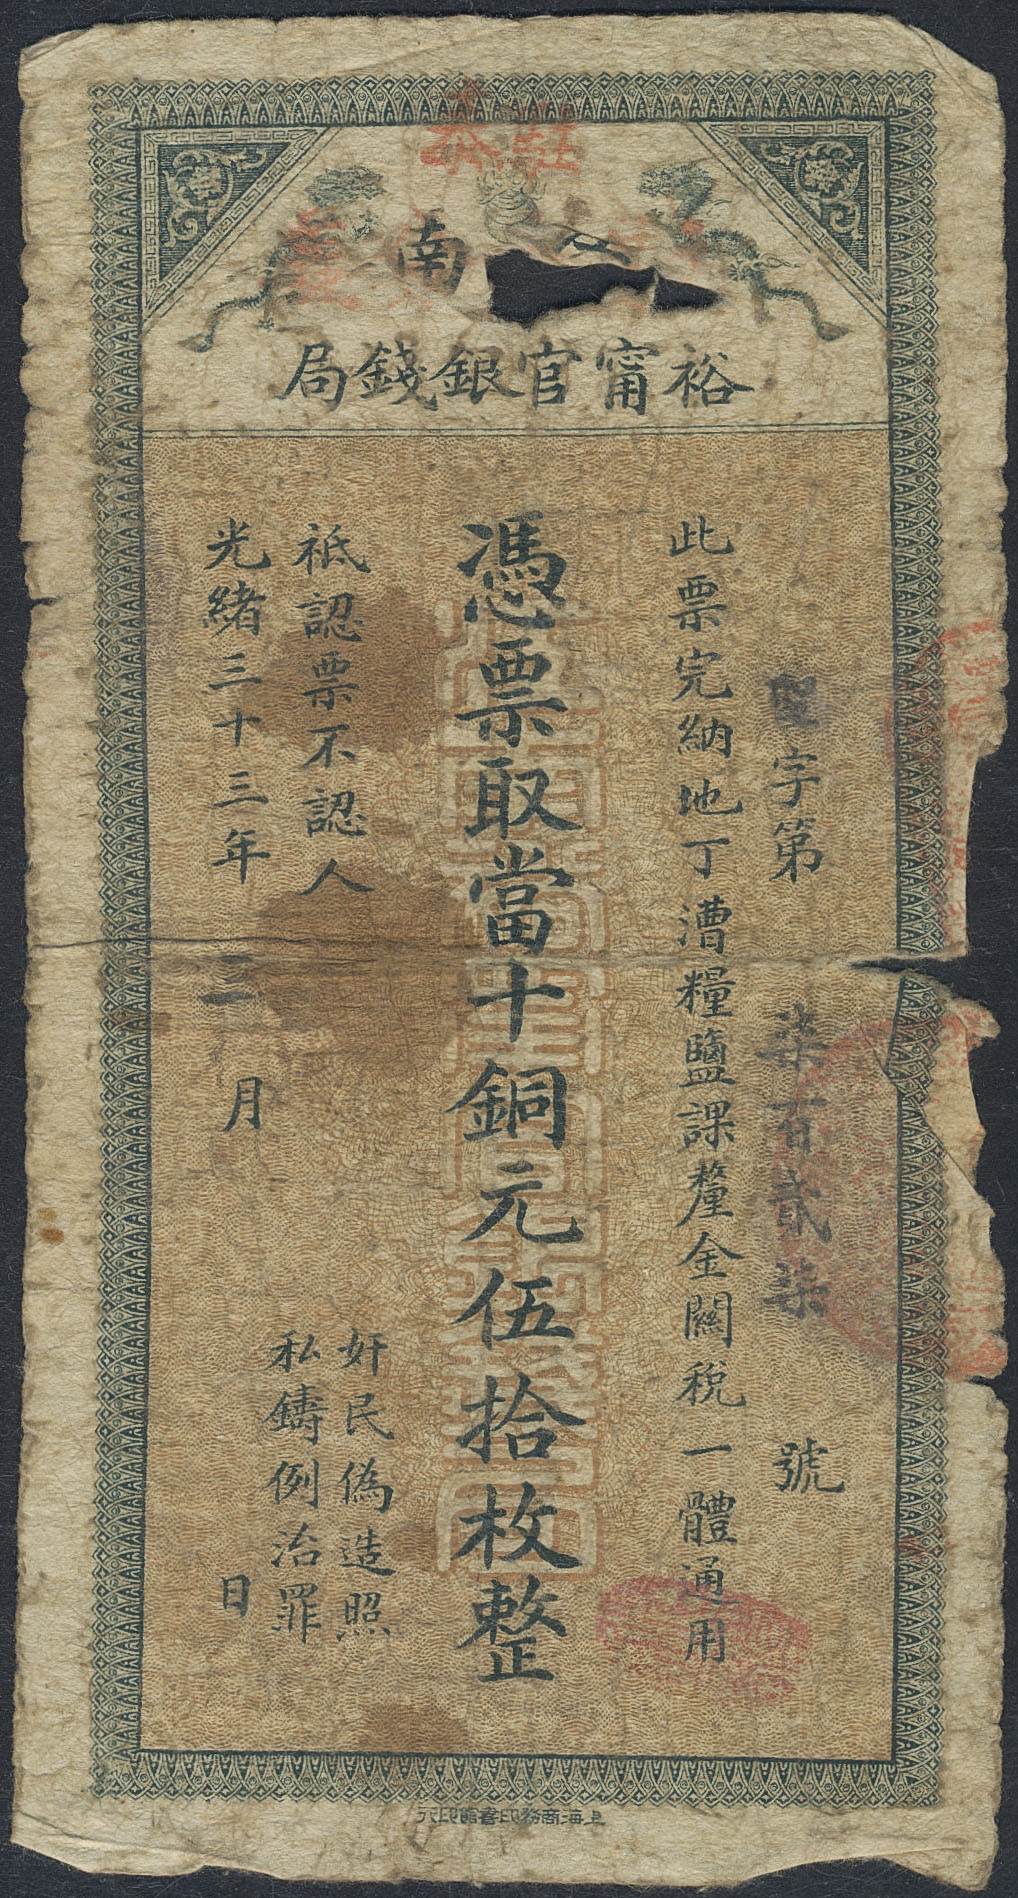 南
裕甯官銀錢局
字第柒百貳柒號
此票完納地丁漕糧鹽課釐金關税一體通用
憑票取當十銅元伍拾枚整
祗認票不認人
奸民偽造照
私鑄例治罪
光緒三十三年三月日
上海商務印書館印行